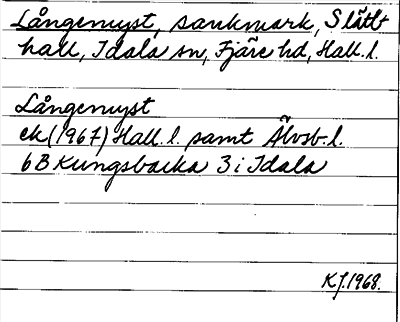 Långemyst, sankmark, Slätt-
hall, Idala sn, Fjäre hd, Hall. l.
Långemyst
ek (1967) Hall. l. samt Älvsb. l.
6B Kungsbacka 3 i Idala
KJ. 1968.